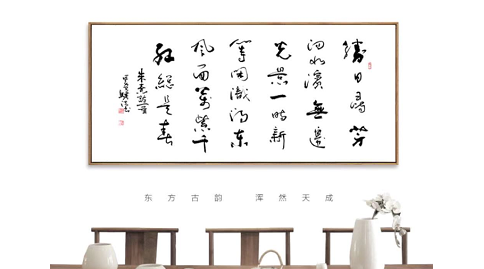 勝日尋芳
泗水濱無邊
光景一時新
等閑識得東
風面萬紫千
紅總是春
朱熹
东方古韵 浑然天成